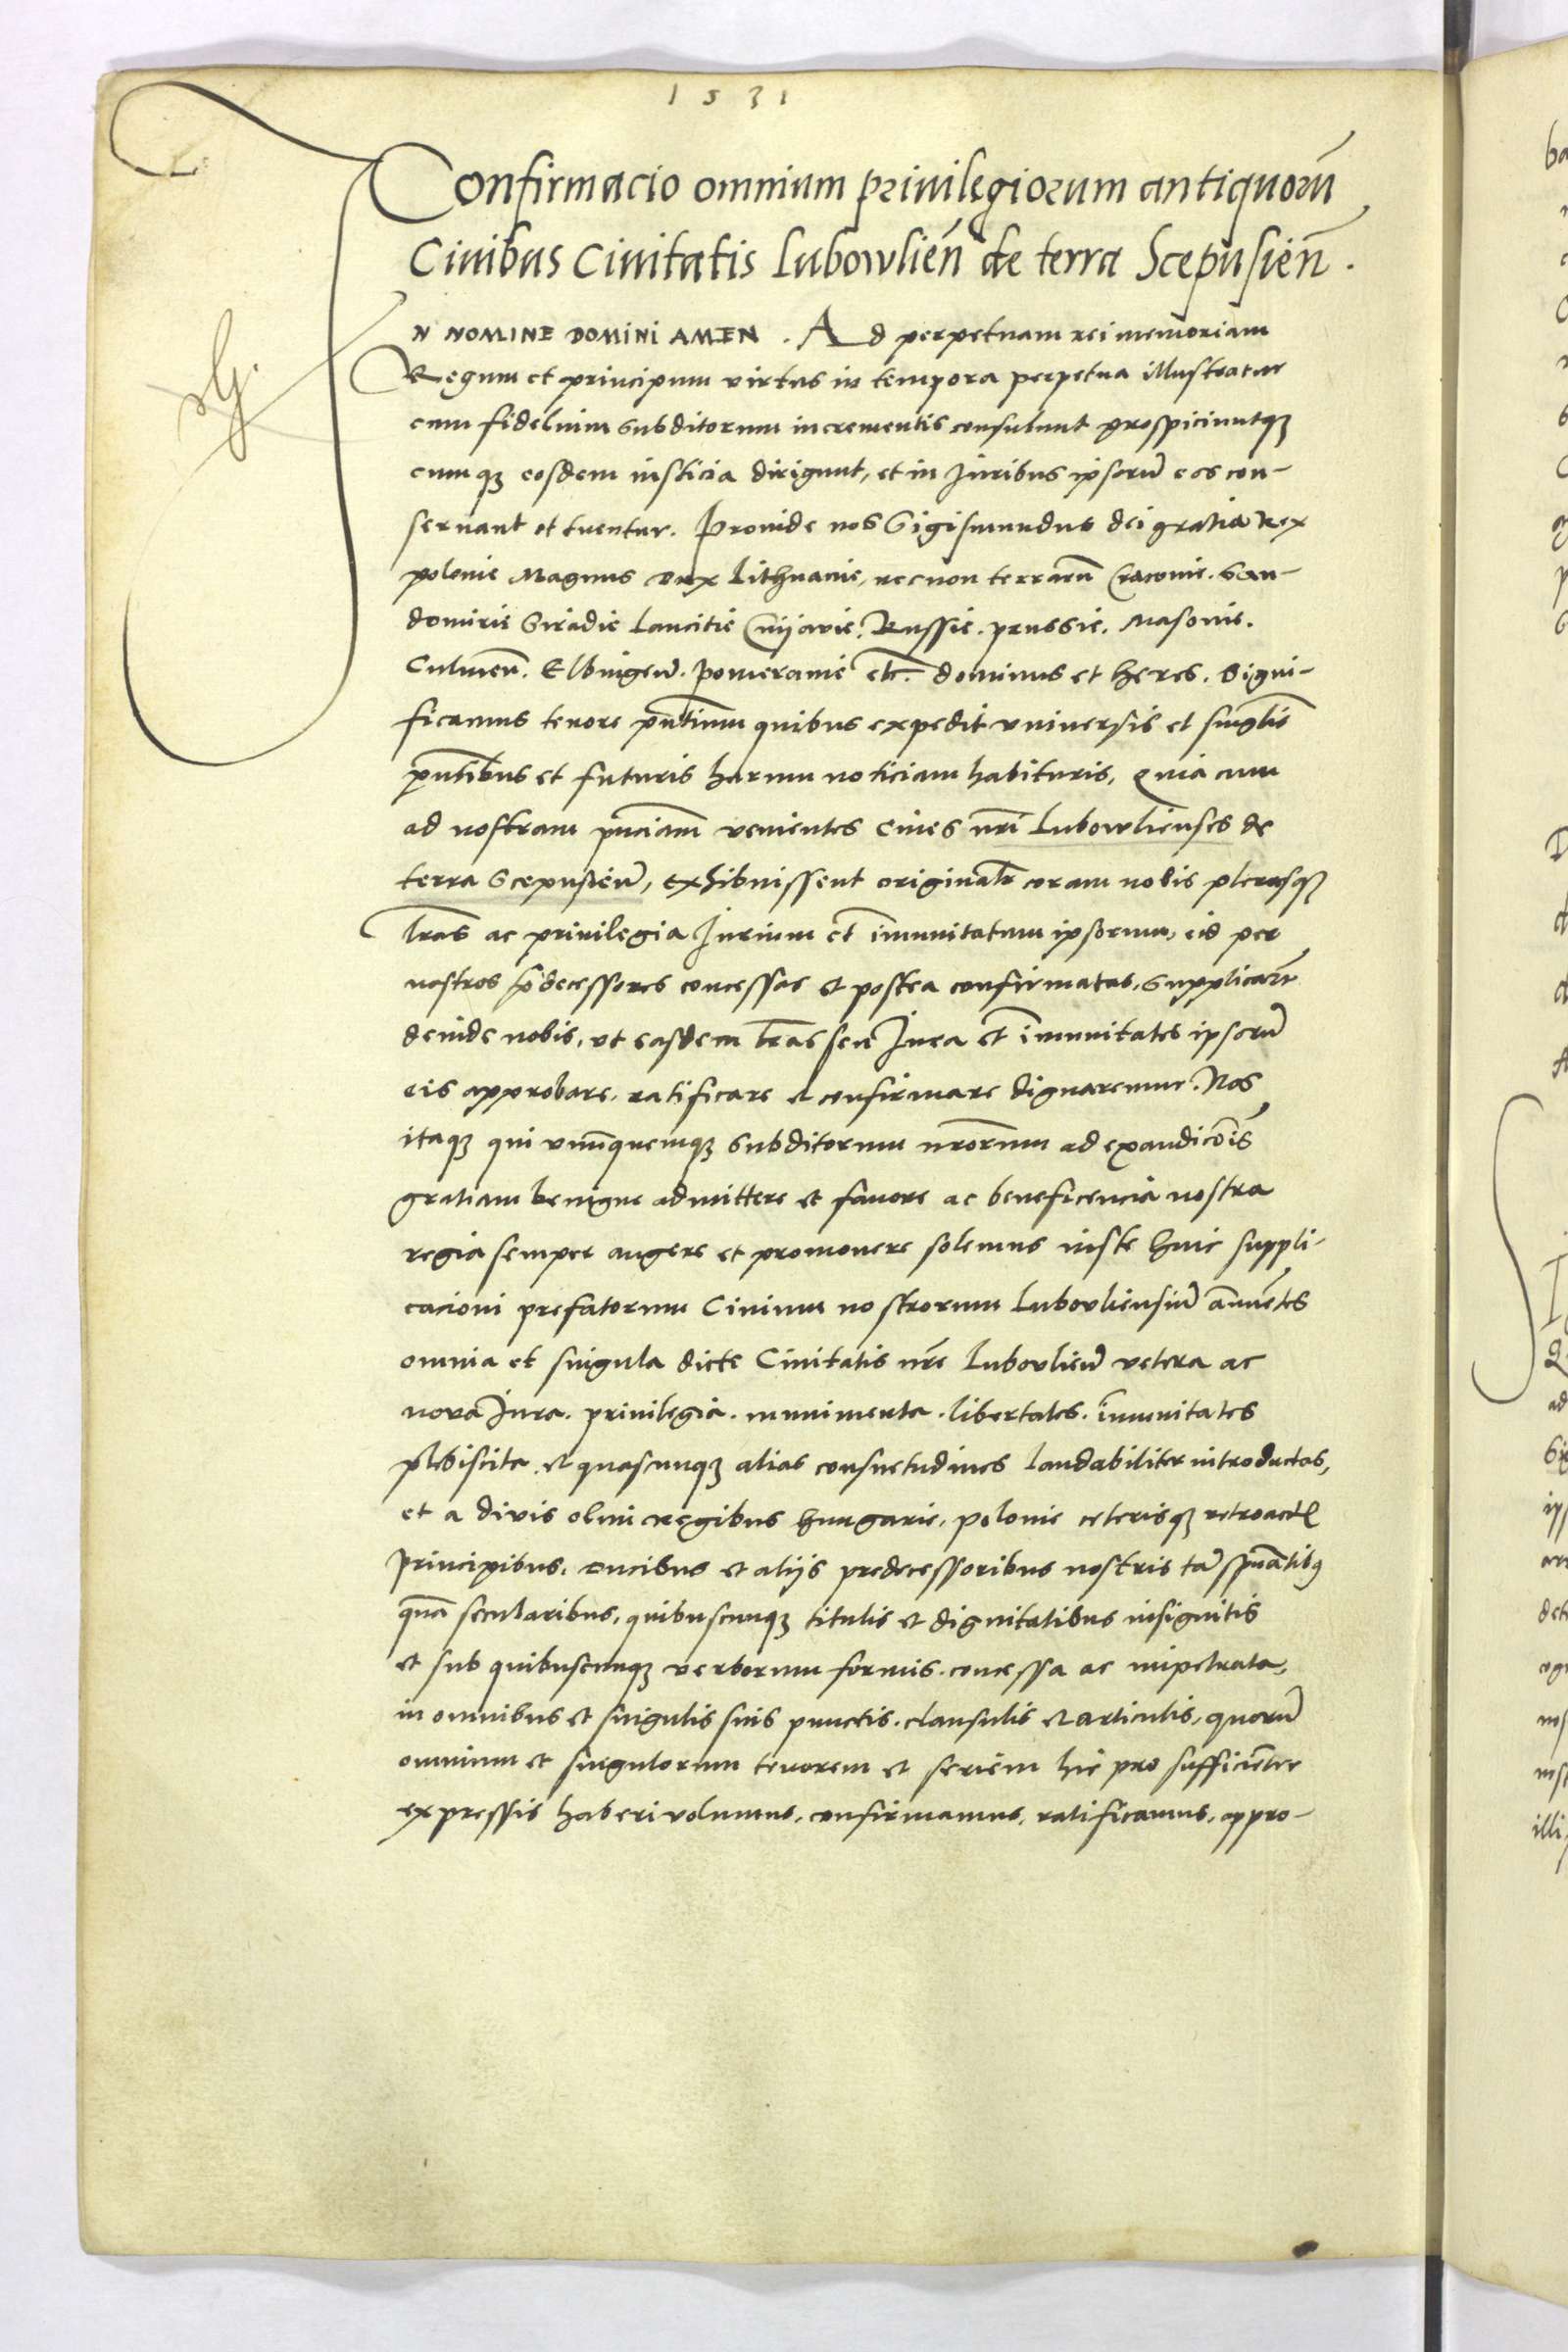 1531
Confirmacio omnium privilegiorum antiquorũ
Civibus Civitatis Lubowlien̄ de terra Scepusien̄.
IN NOMINE DOMINI AMEN. Ad perpetuam rei memoriam
Regum et principum virtus in tempora perpetua illustratur
cum fidelium subditorum incrementis consulunt prospiciuntqȝ
cumqȝ eosdem iusticia dirigunt, et in Juribus ipsorũ eos con-
servant et tuentur. Proinde nos Sigismundus dei gratia Rex
polonie Magnus dux Lithuanie, necnon terrarũ Cracovie. San-
domirie Siradie Lancitie Cuijavie. Russie. prussie. Masovie.
Culmen̄. Elbingen̄. Pomeranie etc̄. dominus et heres. Signi-
ficamus tenore pñtium quibus expedit universis et singl̄is
pñtibus et futuris harum noticiam habituris, Quia cum
ad nostram pñciam venientes Cives nr̄i Lubowlienses de
terra Scepusien̄, exhibuissent originalr̄ coram nobis plerasqȝ
lr̄as ac privilegia Jurium et im̄unitatum ipsorum, eis per
nostros p̄decessores concessas et postea confirmatas, supplicarũt
deinde nobis, ut easdem lr̄as seu Jura et im̄unitates ipsorũ
eis approbare, ratificare et confirmare dignaremur. Nos
itaqȝ qui unũquemqȝ subditorum nr̄orum ad exaudicōis
gratiam benigne admittere et favore ac beneficencia nostra
regia semper augere et promovere solemus iuste huic suppli-
cacioni prefatorum Civium nostrorum Lubovliensiũ an̄uẽtes
omnia et singula dicte Civitatis nr̄e Lubovlien̄ vetera ac
nova Jura. privilegia. munimenta. libertates. im̄unitates
plebiscita et quascunqȝ alias consuetudines laudabiliter introductas,
et a divis olim regibus hungarie, polonie ceterisqȝ retroactis
Principibus, ducibus et aliis predecessoribus nostris tã spũalibꝰ
quã secularibus, quibuscunqȝ titulis et dignitatibus insignitis
et sub quibuscunqȝ verborum formis. concessa ac impetrata,
in omnibus et singulis suis punctis. clausulis et articulis, quorũ
omnium et singulorum tenorem et seriem hic pro sufficiẽter
expressis haberi volumus, confirmamus, ratificamus, appro-